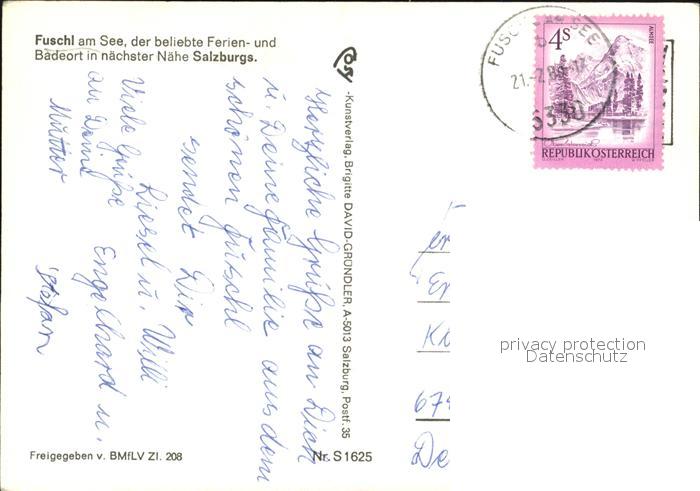 Fuschl am See, der beliebte Ferien- und
Badeort in nächster Nähe Salzburgs.
Cosy
-Kunstverlag, Brigitte DAVID-GRÜNDLER, A-5013 Salzburg, Postf. 35
Herzliche Grüße an Dich
u. Deine Familie aus dem
schönen Fuschl
sendet Dir
Liesel u. Willi
Engelhard u.
Stefan
Viele Grüße
an Deine
Mutter
FUSCHL SEE
21.-2.80-17
5330
4S
ALMSEE
REPUBLIK ÖSTERREICH
Er
Kr
674
De
privacy protection
Datenschutz
Freigegeben v. BMfLV ZI. 208
Nr. S 1625